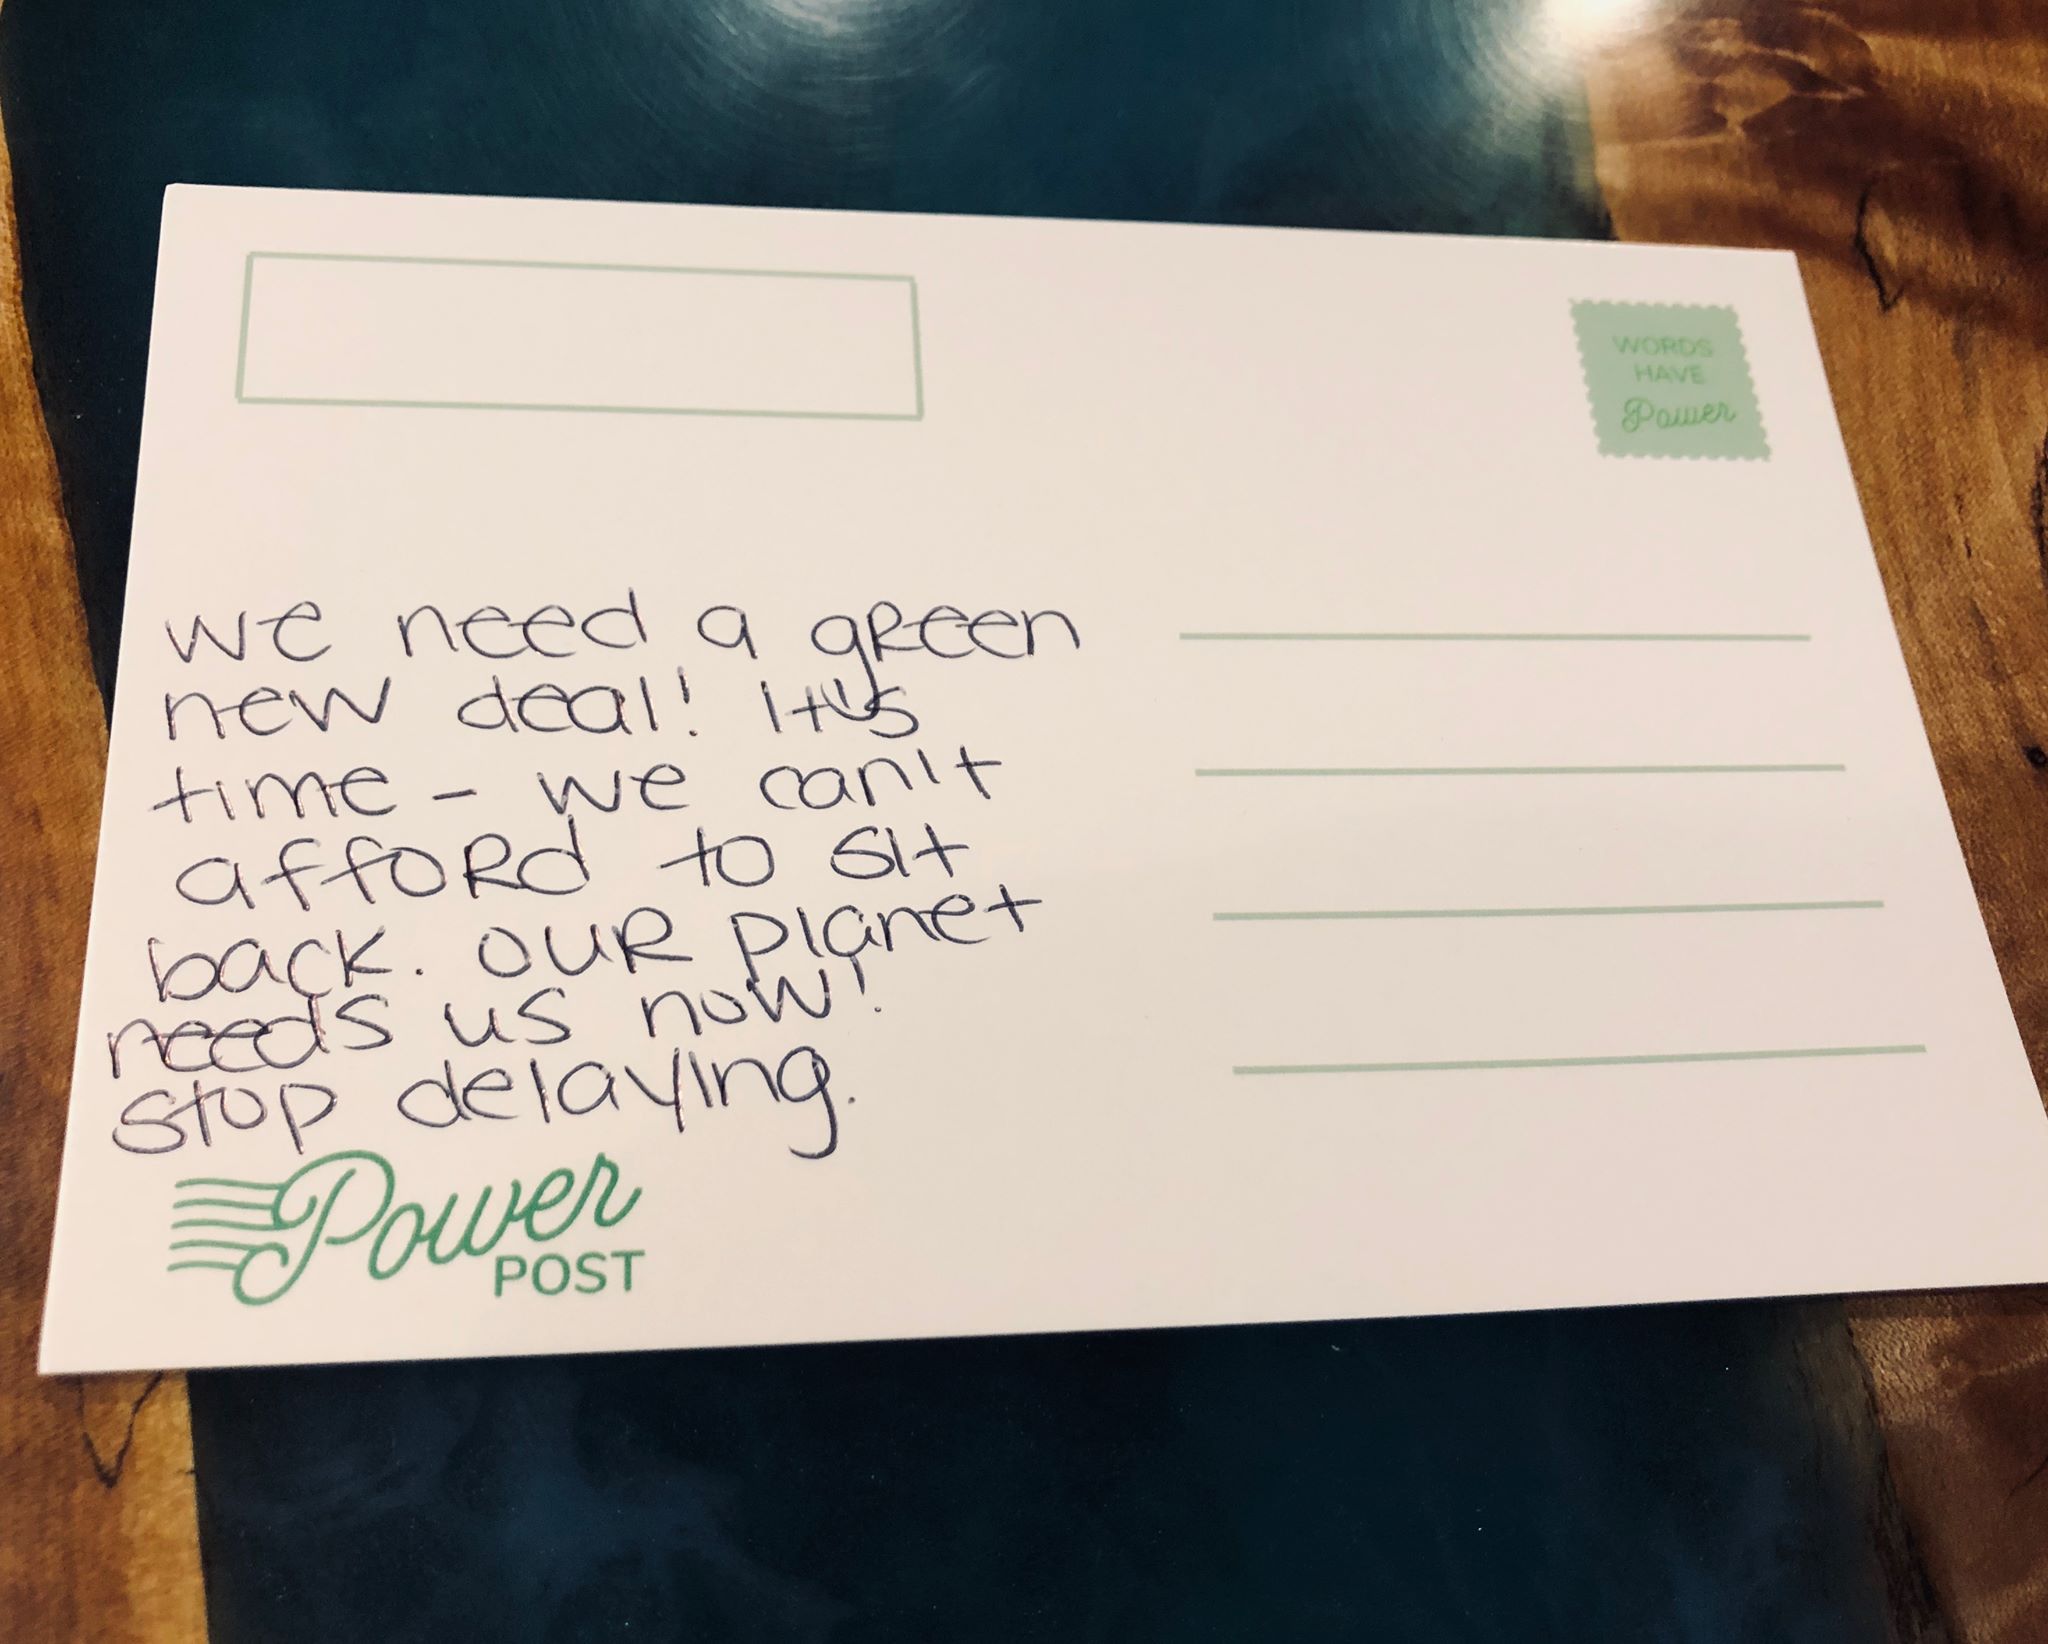 WORDS
HAVE
Power
we need a gReen
new deal! It's
time - we can't
affoRd to sit
back. OUR planet
needs us now!
stop delaying.
Power
POST